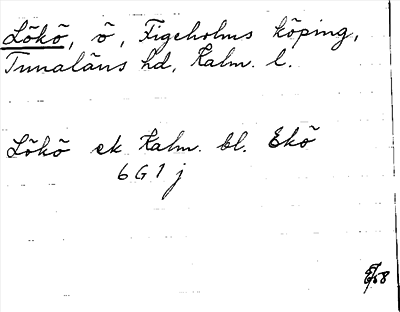 Lökö, ö, Figeholms köping,
Tunaläns hd, Kalm. l.
Lökö ek Kalm. bl. Ekö
6 G 1 j